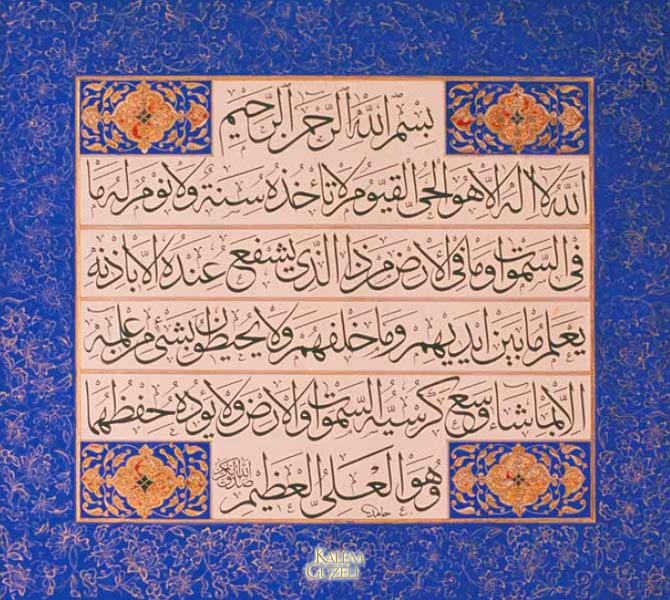 بسم الله الرحمن الرحيم
الله لا اله الا هو الحي القيوم لا تأخذه سنة ولا نوم له ما
في السموات وما في الأرض من ذا الذي يشفع عنده الا باذنه
يعلم ما بين ايديهم وما خلفهم ولا يحيطون بشئ من علمه
الا بما شاء وسع كرسيه السموات والارض ولا يؤده حفظهما
وهو العلي العظيم
حامد
KALEM
GÜZELİ